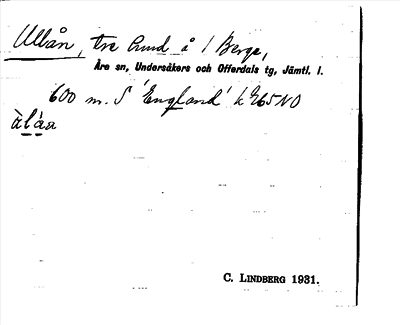 Ullån, tre hund å / Berge,
Åre sn, Undersåkers och Offerdals tg, Jämtl. l.
600 m. S 'England' k 265 NO
àláa
C. LINDBERG 1931.